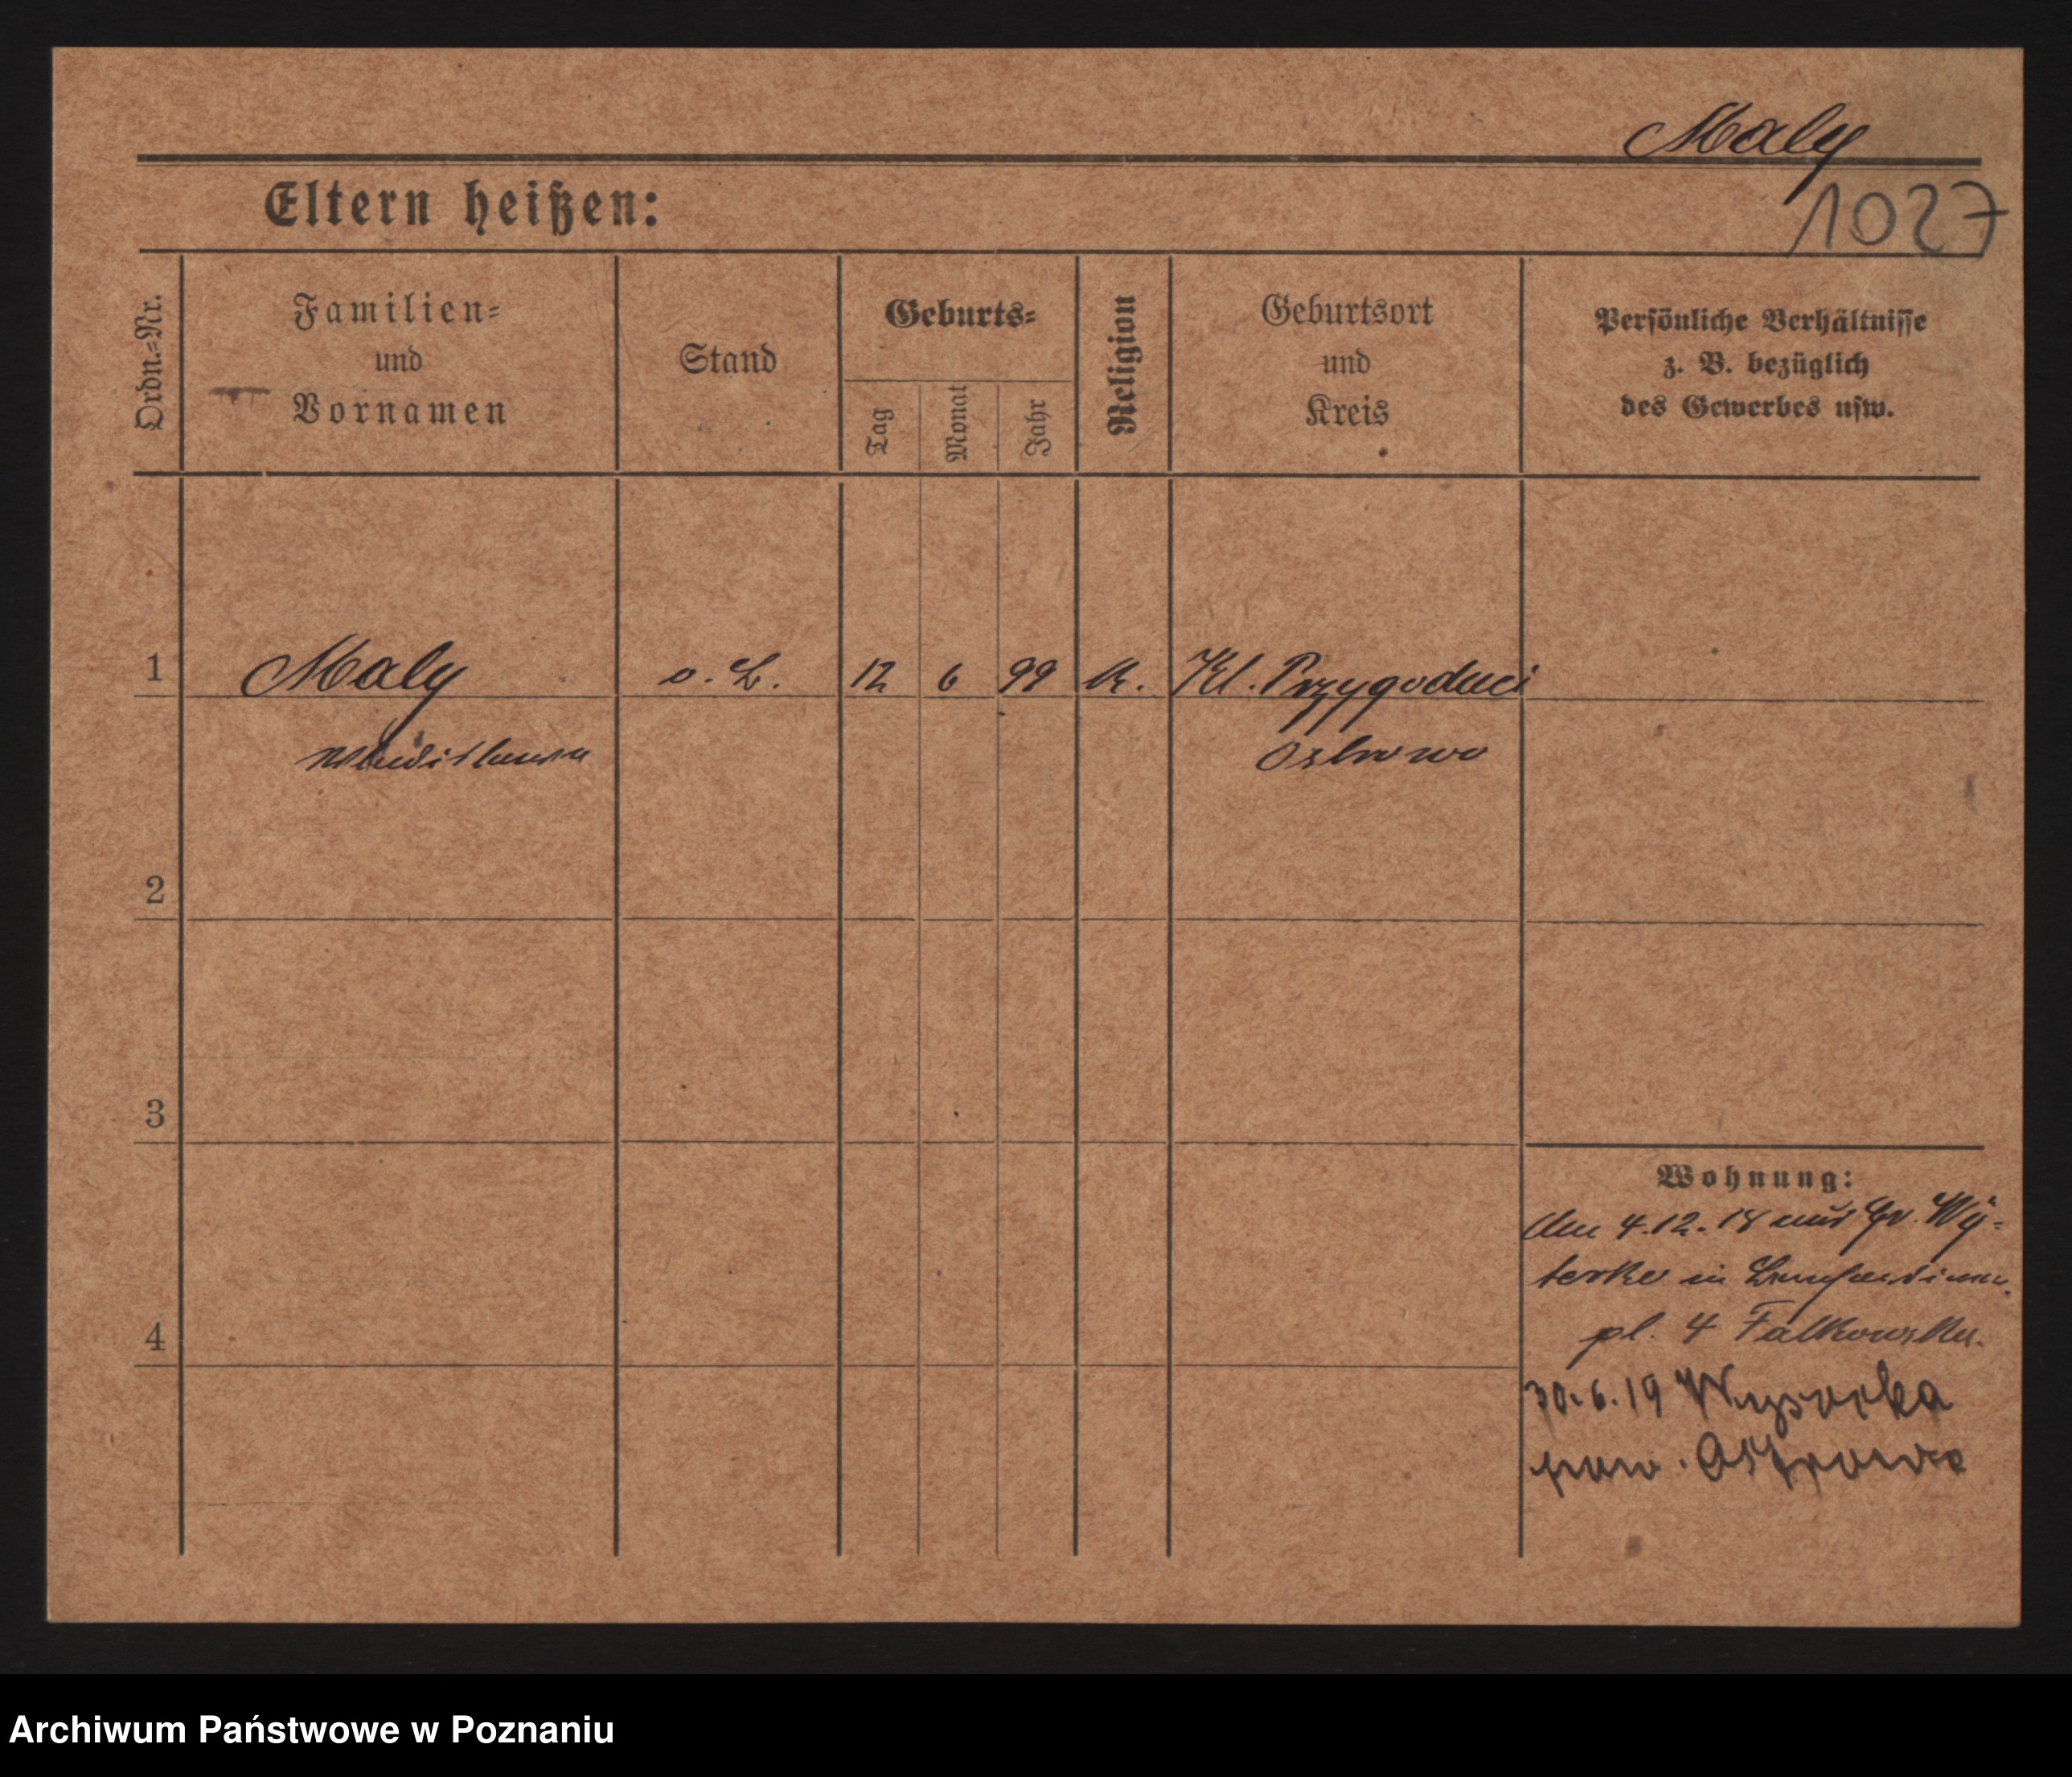 Maly
1027
Eltern heißen:
Ordn.-Nr.
Familien-
und
Vornamen
Stand
Geburts-
Tag
Monat
Jahr
Religion
Geburtsort
und
Kreis
Persönliche Verhältnisse
z. B. bezüglich
des Gewerbes usw.
1 Maly o. B. 12 6 99 K. Kl. Przygodzici
Wladislawa Ostrowo
2
3
4
Wohnung:
Am 4.12.18 aus Gr. Wy-
tocko in
pl. 4 Falkowska.
30.6.19 Wysocka
pow. Ostrowo
Archiwum Państwowe w Poznaniu